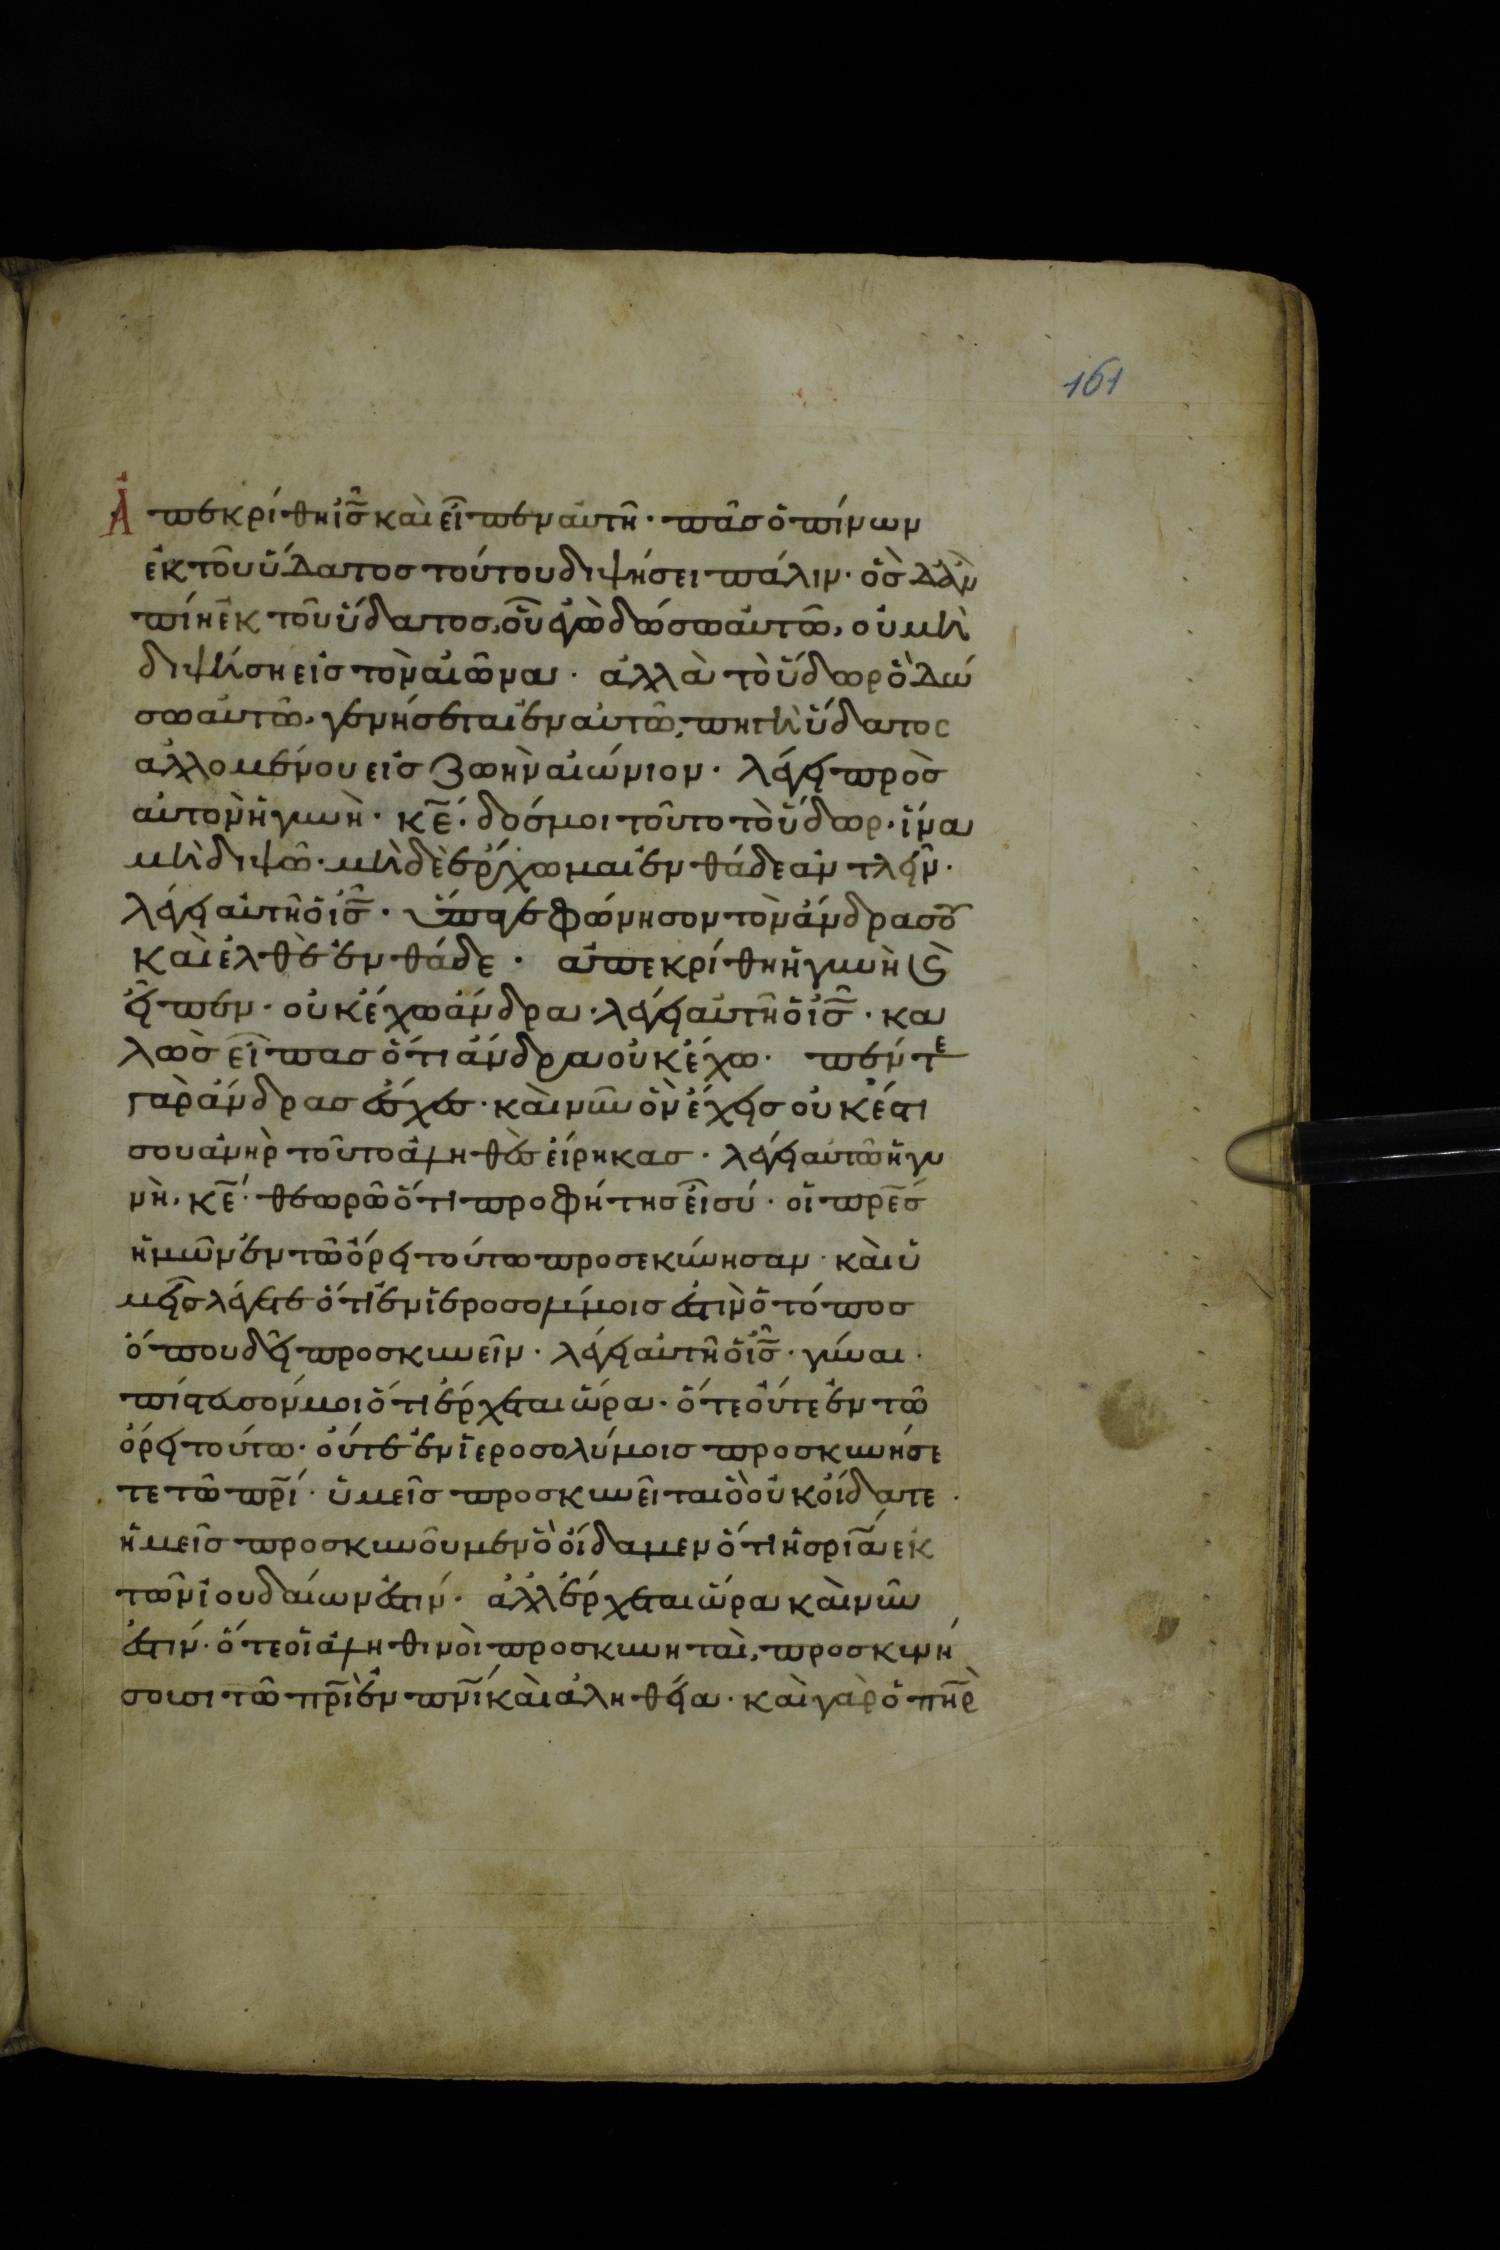 161
Ἀπεκρίθη ἰ̅ς̅ καὶ εἶπεν αὐτῆ· πᾶσ ὁ πίνων
ἐκ τοῦ ὕδατοσ τούτου διψήσει πάλιν· ὃσ δ' ἂν
πίη ἐκ τοῦ ὕδατοσ, οὗ ἐγὼ δώσω αὐτῶ, οὐ μὴ
διψήση εἰσ τὸν αἰῶνα· ἀλλὰ τὸ ὕδωρ ὃ δώ
σω αὐτῶ, γενήσεται ἐν αὐτῶ, πηγὴ ὕδατοσ
ἀλλομένου εἰσ ζωὴν αἰώνιον· λέγει πρὸσ
αὐτὸν ἡ γυνὴ· κ̅ε̅· δόσ μοι τοῦτο τὸ ὕδωρ· ἵνα
μὴ διψῶ· μὴ δὲ ἔρχωμαι ἐνθάδε ἀντλεῖν·
λέγει αὐτῆ ὁ ἰ̅ς̅· ὕπαγε φώνησον τὸν ἄνδρα σοῦ
καὶ ἐλθὲ ἐνθάδε· ἀπεκρίθη ἡ γυνὴ ϗ
εἶπεν· οὐκ ἔχω ἄνδρα· λέγει αὐτῆ ὁ ἰ̅ς̅· κα
λῶσ εἶπασ ὅτι ἄνδρα οὐκ ἔχω· πέντε
γὰρ ἄνδρασ ἔσχεσ· καὶ νῦν ὃν ἔχεισ οὐκ ἔστι
σου ἀνὴρ τοῦτο ἀληθὲσ εἴρηκασ· λέγει αὐτῶ ἡ γυ
νὴ, κ̅ε̅· θεωρῶ ὅτι προφήτησ εἶ σύ· οἱ π̅ρ̅ε̅σ̅
ἡμῶν ἐν τῶ ὄρει τούτω προσεκύνησαν· καὶ ὑ
μεῖσ λέγετε ὅτι ἐν ἱεροσολύμοισ ἐστὶν ὁ τόποσ
ὅπου δεῖ προσκυνεῖν· λέγει αὐτῆ ὁ ἰ̅ς̅· γύναι·
πίστευσόν μοι ὅτι ἔρχεται ὥρα· ὅτε οὔτε ἐν τῶ
ὄρει τούτω· οὔτε ἐν ἱεροσολύμοισ προσκυνήσε
τε τῶ π̅ρ̅ι̅· ὑμεῖσ προσκυνεῖται ὃ οὐκ οἴδατε·
ἡμεῖσ προσκυνοῦμεν ὃ οἴδαμεν ὅτι ἡ σ̅ρ̅ι̅α̅ ἐκ
τῶν ἰουδαίων ἐστίν· ἀλλ' ἔρχεται ὥρα καὶ νῦν
ἐστιν· ὅτε οἱ ἀληθινοὶ προσκυνηταὶ, προσκυνή
σουσι τῶ π̅ρ̅ι̅ ἐν π̅ν̅ι̅ καὶ ἀληθεία· καὶ γὰρ ὁ π̅η̅ρ̅